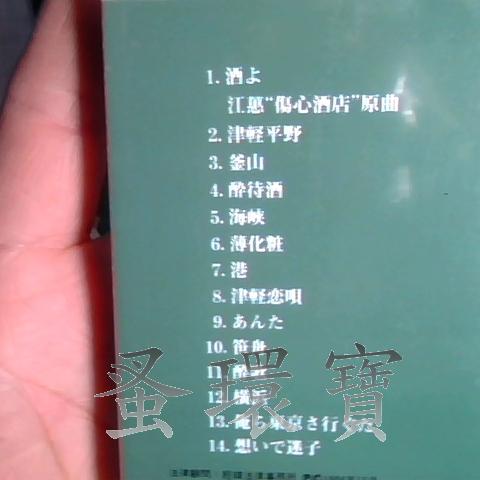 1. 酒よ
江蕙“傷心酒店”原曲
2. 津軽平野
3. 釜山
4. 酔待酒
5. 海峡
6. 薄化粧
7. 港
8. 津軽恋唄
9. あんた
10. 笹舟
11. 酔
12. 横浜
13. 俺ら東京さ行
14. 想いで迷子
蚤環寶
法律顧問：